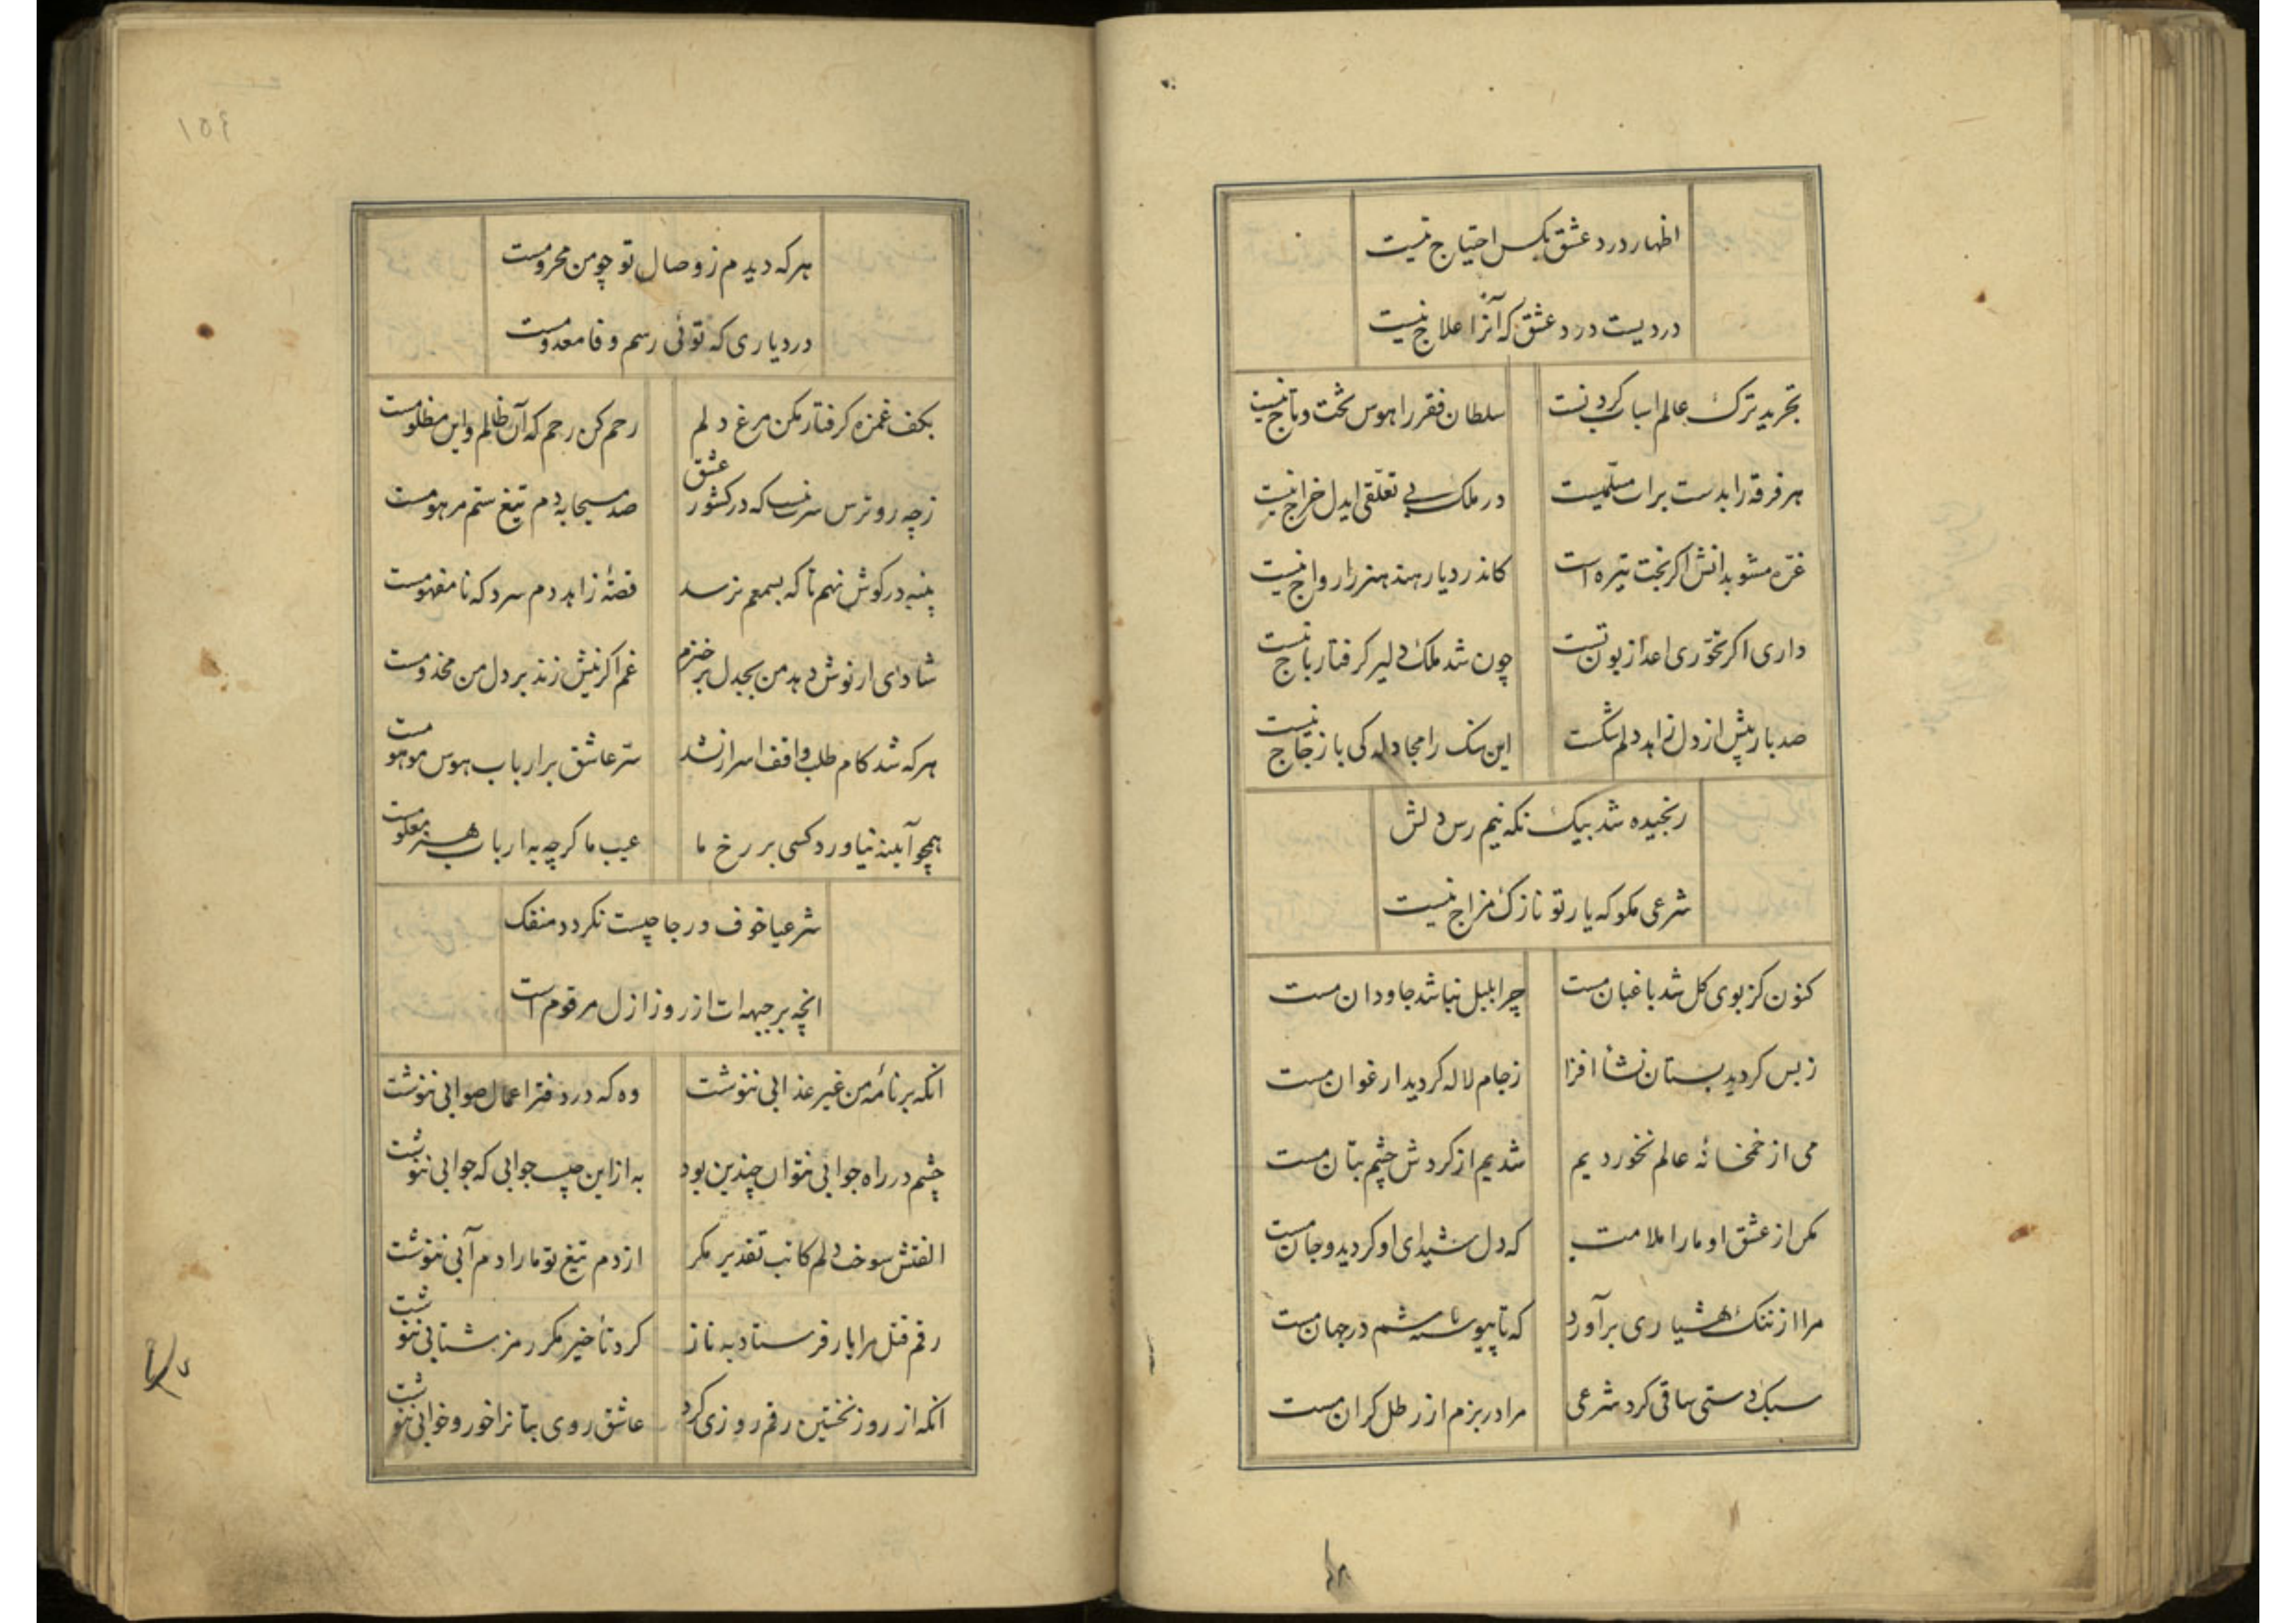 اظهار درد عشق بکس احتیاج نیست
دردیست درد عشق که آنرا علاج نیست
تجرید ترک عالم اسباب کردنست سلطان فقر را هوس تخت و تاج نیست
هر فرقه را بدست برات مسلمیست در ملک بی تعلقی ایدل خراج نیست
غره مشو بدانش اگر بخت تیره است کاندر دیار هند هنر را رواج نیست
داری اگر تخوری اعدا زبون تست چون شد ملک دلیر گرفتار باج نیست
صد بار بیش از دل زاهد دلم شکست این سنک را مجادله کی با زجاج نیست
رنجیده شد بیک نکه نیم رس دلش
شرعی مکو که یار تو نازک مزاج نیست
کنون کز بوی کل شد باغبان مست چرا بلبل نباشد جاودان مست
ز بس کردید بستان نشأ افزا ز جام لاله کردید ارغوان مست
می از خمخانهٔ عالم نخوردیم شدیم از کردش چشم بتان مست
مکن از عشق او ما را ملامت که دل شیدای او کردید و جان مست
مرا از ننک هشیاری برآورد که تا پیوسته باشم در جهان مست
سبک دستی ساقی کرد شرعی مرا در بزم از رطل کران مست
۱۵۶
هر که دیدم ز وصال تو چو من محرومست
در دیاری که توئی رسم وفا معدومست
بکف غمزه کرفتار مکن مرغ دلم رحم کن رحم که آن ظالم و این مظلومست
ز چه رو ترس سرت نیست که در کشور عشق صد مسیحا به دم تیغ ستم مرهومست
پنبه در کوش نهم تا که بسمعم نرسد قصهٔ زاهد دم سرد که نامفهومست
شادی ار نوش دهد من بجدل برخیزم غم اکر نیش زند بر دل من مخدومست
هر که شد کام طلب واقف اسرار نشد سر عاشق بر ارباب هوس موهومست
همچو آیینه نیاورد کسی بر رخ ما عیب ما کرچه به ارباب هنر معلومست
شرعیا خوف و رجا چیست نکردد منفک
انچه بر جبهه ات از روز ازل مرقوم است
انکه بر نامهٔ من غیر عذابی ننوشت وه که در دفتر اعمال صوابی ننوشت
چشم در راه جوابی نتوان چندین بود به ازاین چیست جوابی که جوابی ننوشت
الفتش سوخت دلم کاتب تقدیر مکر از دم تیغ تو ما را دم آبی ننوشت
رقم قتل مرا یار فرستاد به ناز کرد تأخیر مکر رمز شتابی ننوشت
انکه از روز نخستین رقم روزی کرد عاشق روی بتانرا خور و خوابی ننوشت